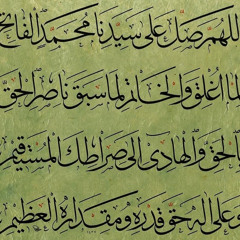 اللهم صل على سيدنا محمد الفاتح
لما اغلق والخاتم لما سبق ناصر الحق
بالحق والهادي الى صراطك المستقيم
وعلى اله حق قدره ومقداره العظيم